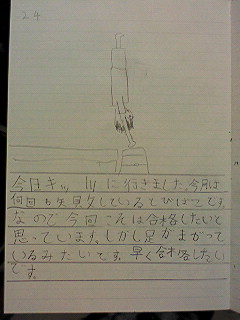 24
今日キッ
に行きました。今月は
何回も失貝攵しているとびばこです。
なので今回こえは合格したいと
思っています。しかし足がまがって
いるみたいです。早く合格したい
です。